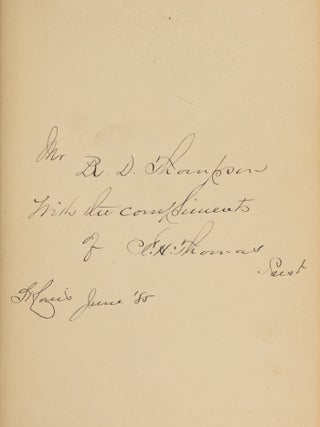 Mr
R. D. Thompson
With the compliments
of F. H. Thomas
St Louis June '85